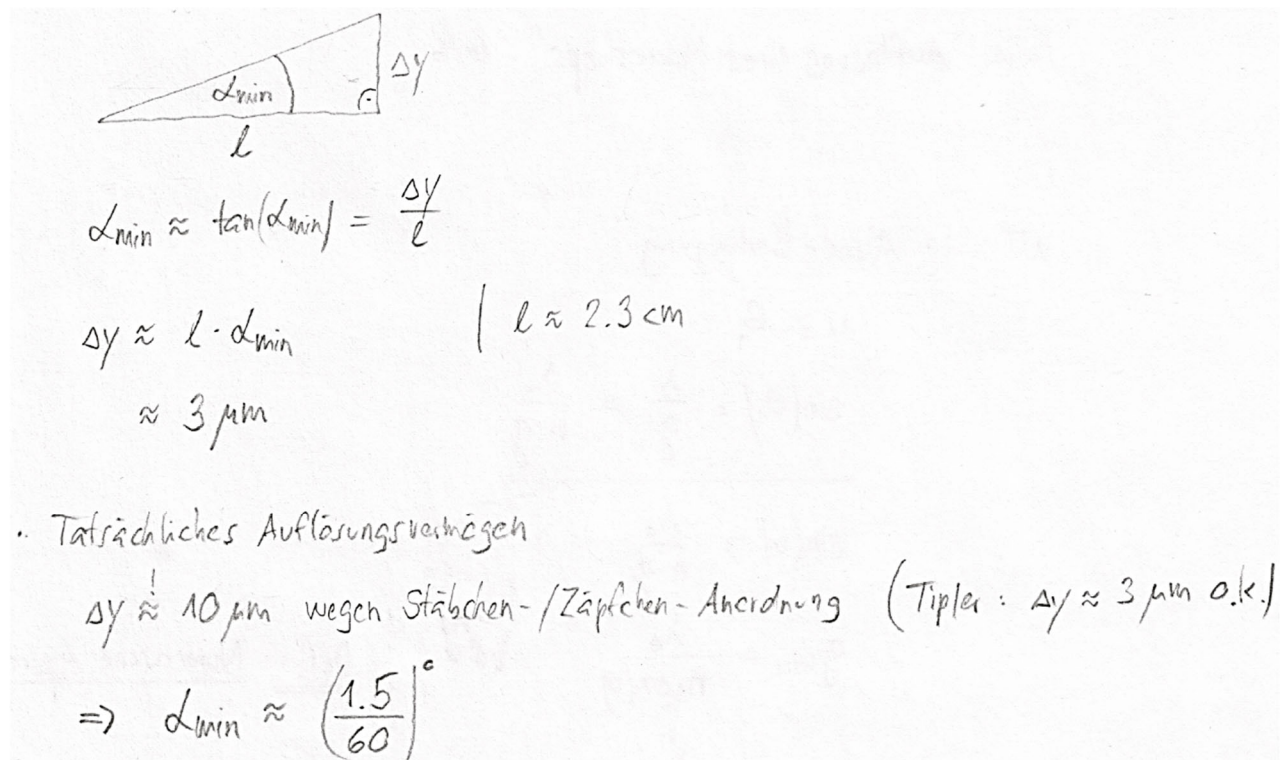 αmin Δy
l
αmin ≈ tan(αmin) = Δy/l
Δy ≈ l · αmin | l ≈ 2.3 cm
≈ 3 μm
· Tatsächliches Auflösungsvermögen
Δy ≈! 10 μm wegen Stäbchen-/Zäpfchen-Anordnung (Tipler: Δy ≈ 3 μm o.k.)
=> αmin ≈ (1.5/60)°